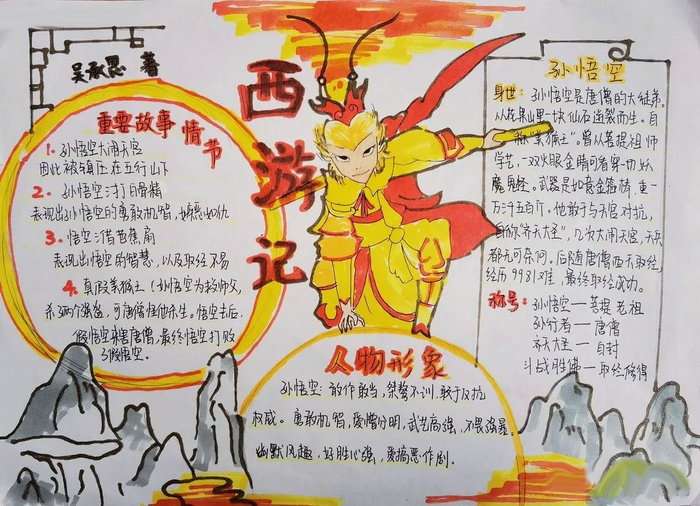 吴承恩 著
西游记
重要故事情节
1. 孙悟空大闹天宫
因此被镇压在五行山下
2. 孙悟空三打白骨精
表现出孙悟空的勇敢机智、嫉恶如仇
3. 悟空三借芭蕉扇
表现出悟空的智慧，以及取经不易
4. 真假美猴王（孙悟空为救师父，
杀两个强盗，可唐僧怪他杀生。悟空去后，
假悟空来害唐僧，最终悟空打败
了假悟空。
孙悟空
身世：孙悟空是唐僧的大徒弟。
从花果山里一块仙石迸裂而生。自
称“美猴王”。曾从菩提祖师
学艺，一双火眼金睛可看穿一切妖
魔鬼怪。武器是如意金箍棒，重一
万三千五百斤。他敢于与天宫对抗，
自称“齐天大圣”，几次大闹天宫，天兵
都无可奈何。后随唐僧西天取经，
经历9981难，最终取经成功。
称号：孙悟空—菩提老祖
孙行者—唐僧
齐天大圣—自封
斗战胜佛—取经修得
人物形象
孙悟空：敢作敢当，桀骜不训，敢于反抗
权威。勇敢机智，爱憎分明，武艺高强，不畏强暴。
幽默风趣，好胜心强，爱搞恶作剧。